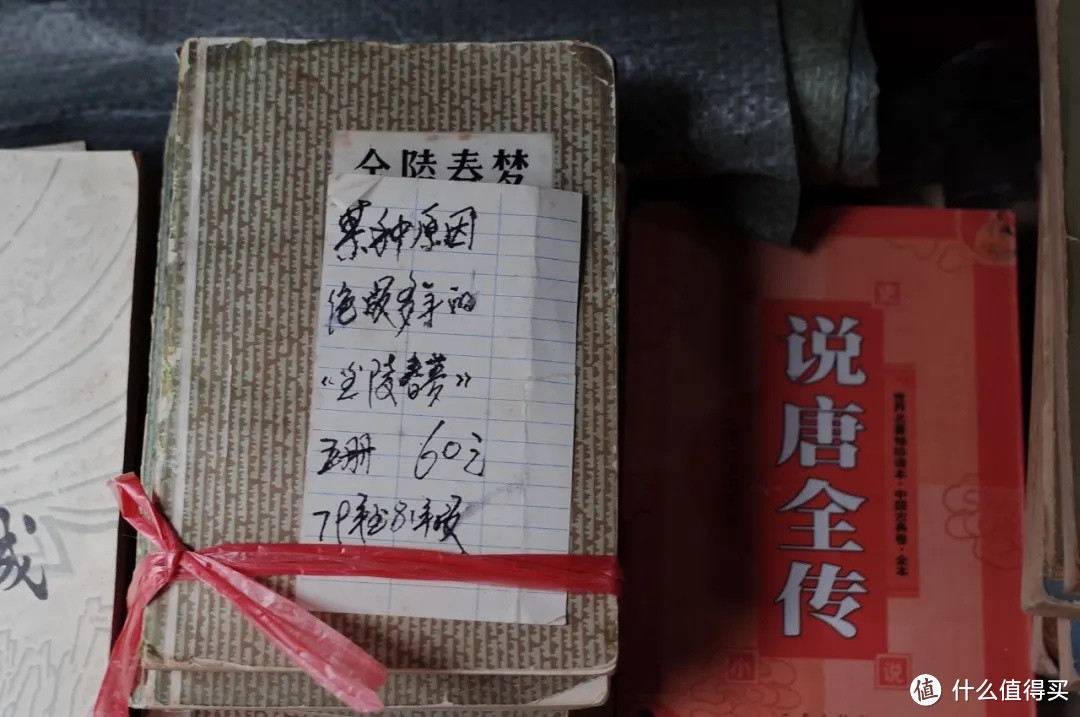 金陵春梦
某种原因
绝版多年的
《金陵春梦》
五册 60元
79年至81年版
说唐全传
世界名著畅销读本·中国古典卷·全本
小说
值 什么值得买